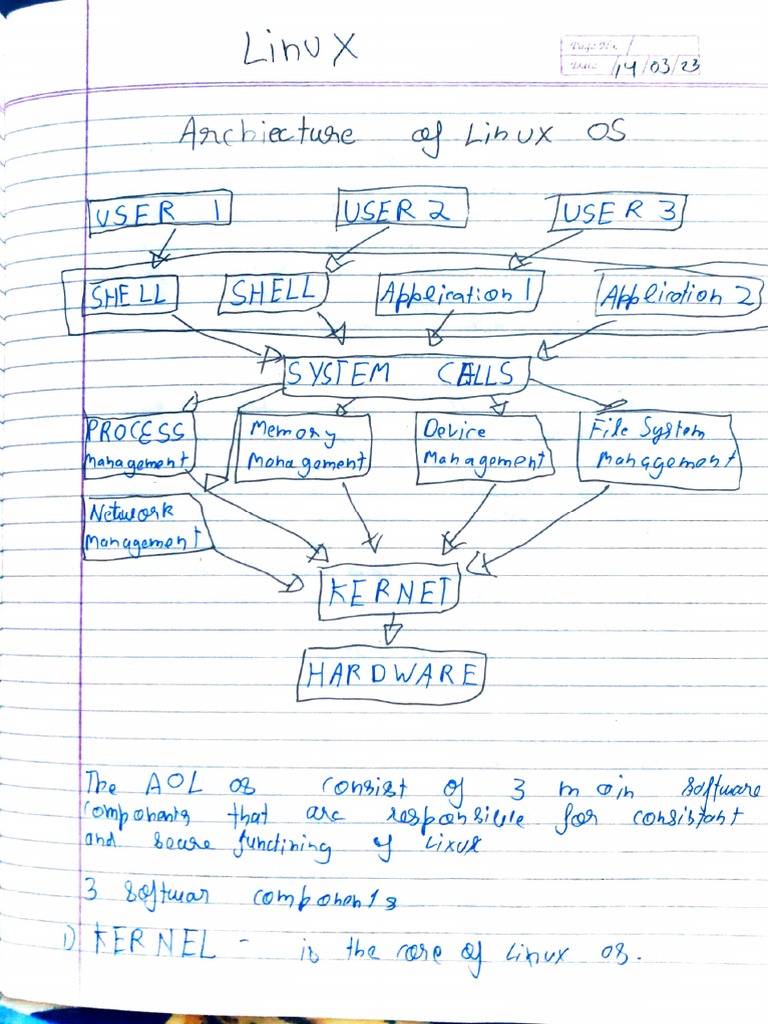 Linux
Page No.
Date 14/03/23
Archiecture of Linux OS
USER 1 USER 2 USER 3
SHELL SHELL Application 1 Application 2
SYSTEM CALLS
PROCESS Memory Device File System
Management Management Management Management
Network
Management
KERNET
HARDWARE
The AOL os consist of 3 main software
components that are responsible for consistant
and secure functining of Linux
3 softwar components
1) KERNEL - is the core of Linux os.